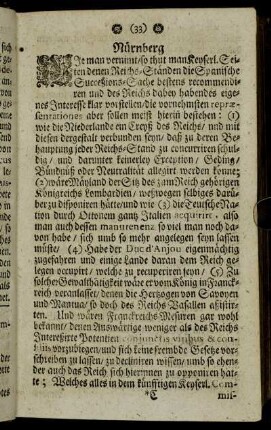 (33)
Nürnberg
WIe man vernimt/ so thut man Keyserl. Sei-
ten denen Reichs-Ständen die Spanische
Successions-Sache bestens recommendi-
ren und des Reichs dabey habendes eige-
nes Interesse klar vorstellen/ die vornehmsten repræ-
sentationes aber sollen meist hierin bestehen: (1)
wie die Niederlande ein Creyß des Reichs/ und mit
diesen dergestalt verbunden seyn/ daß zu deren Be-
hauptung jeder Reichs-Stand zu concurriren schul-
dig/ und darunter keinerley Exception/ Geding/
Bündnüß oder Neutralität allegirt werden könne;
(2) wäre Mäyland der Sitz des zum Reich gehörigen
Königreichs Lombardien/ weßwegen selbiges darü-
ber zu disponiren hätte/ und wie (3) die Teutsche Na-
tion durch Ottonem gantz Italien acquirirt, also
man auch dessen manutenenz so viel man noch da-
von habe/ sich umb so mehr angelegen seyn lassen
müste/ (4) Habe der Duc d'Anjou eigenmächtig
zugefahren und einige Lande daran dem Reich ge-
legen occupirt/ welche zu recuperiren seyn/ (5) Zu
solcher Gewalthätigkeit wäre er vom König in Franck-
reich veranlasset/ denen die Hertzogen von Savoyen
und Mantua/ so doch des Reichs Vasallen assistir-
ten. Und wären Franckreichs Mesuren gar wohl
bekannt/ denen Außwärtige weniger als des Reichs
Interessirte Potentien conjunctis viribus & con-
siliis vorzubiegen/ und sich keine frembde Gesetze vor-
schreiben zu lassen/ zu decliniren wissen/ umb so ehen-
der auch das Reich sich hierinnen zu opponiren hät-
te; Welches alles in dem künfftigen Keyserl. Com-
*C mis-